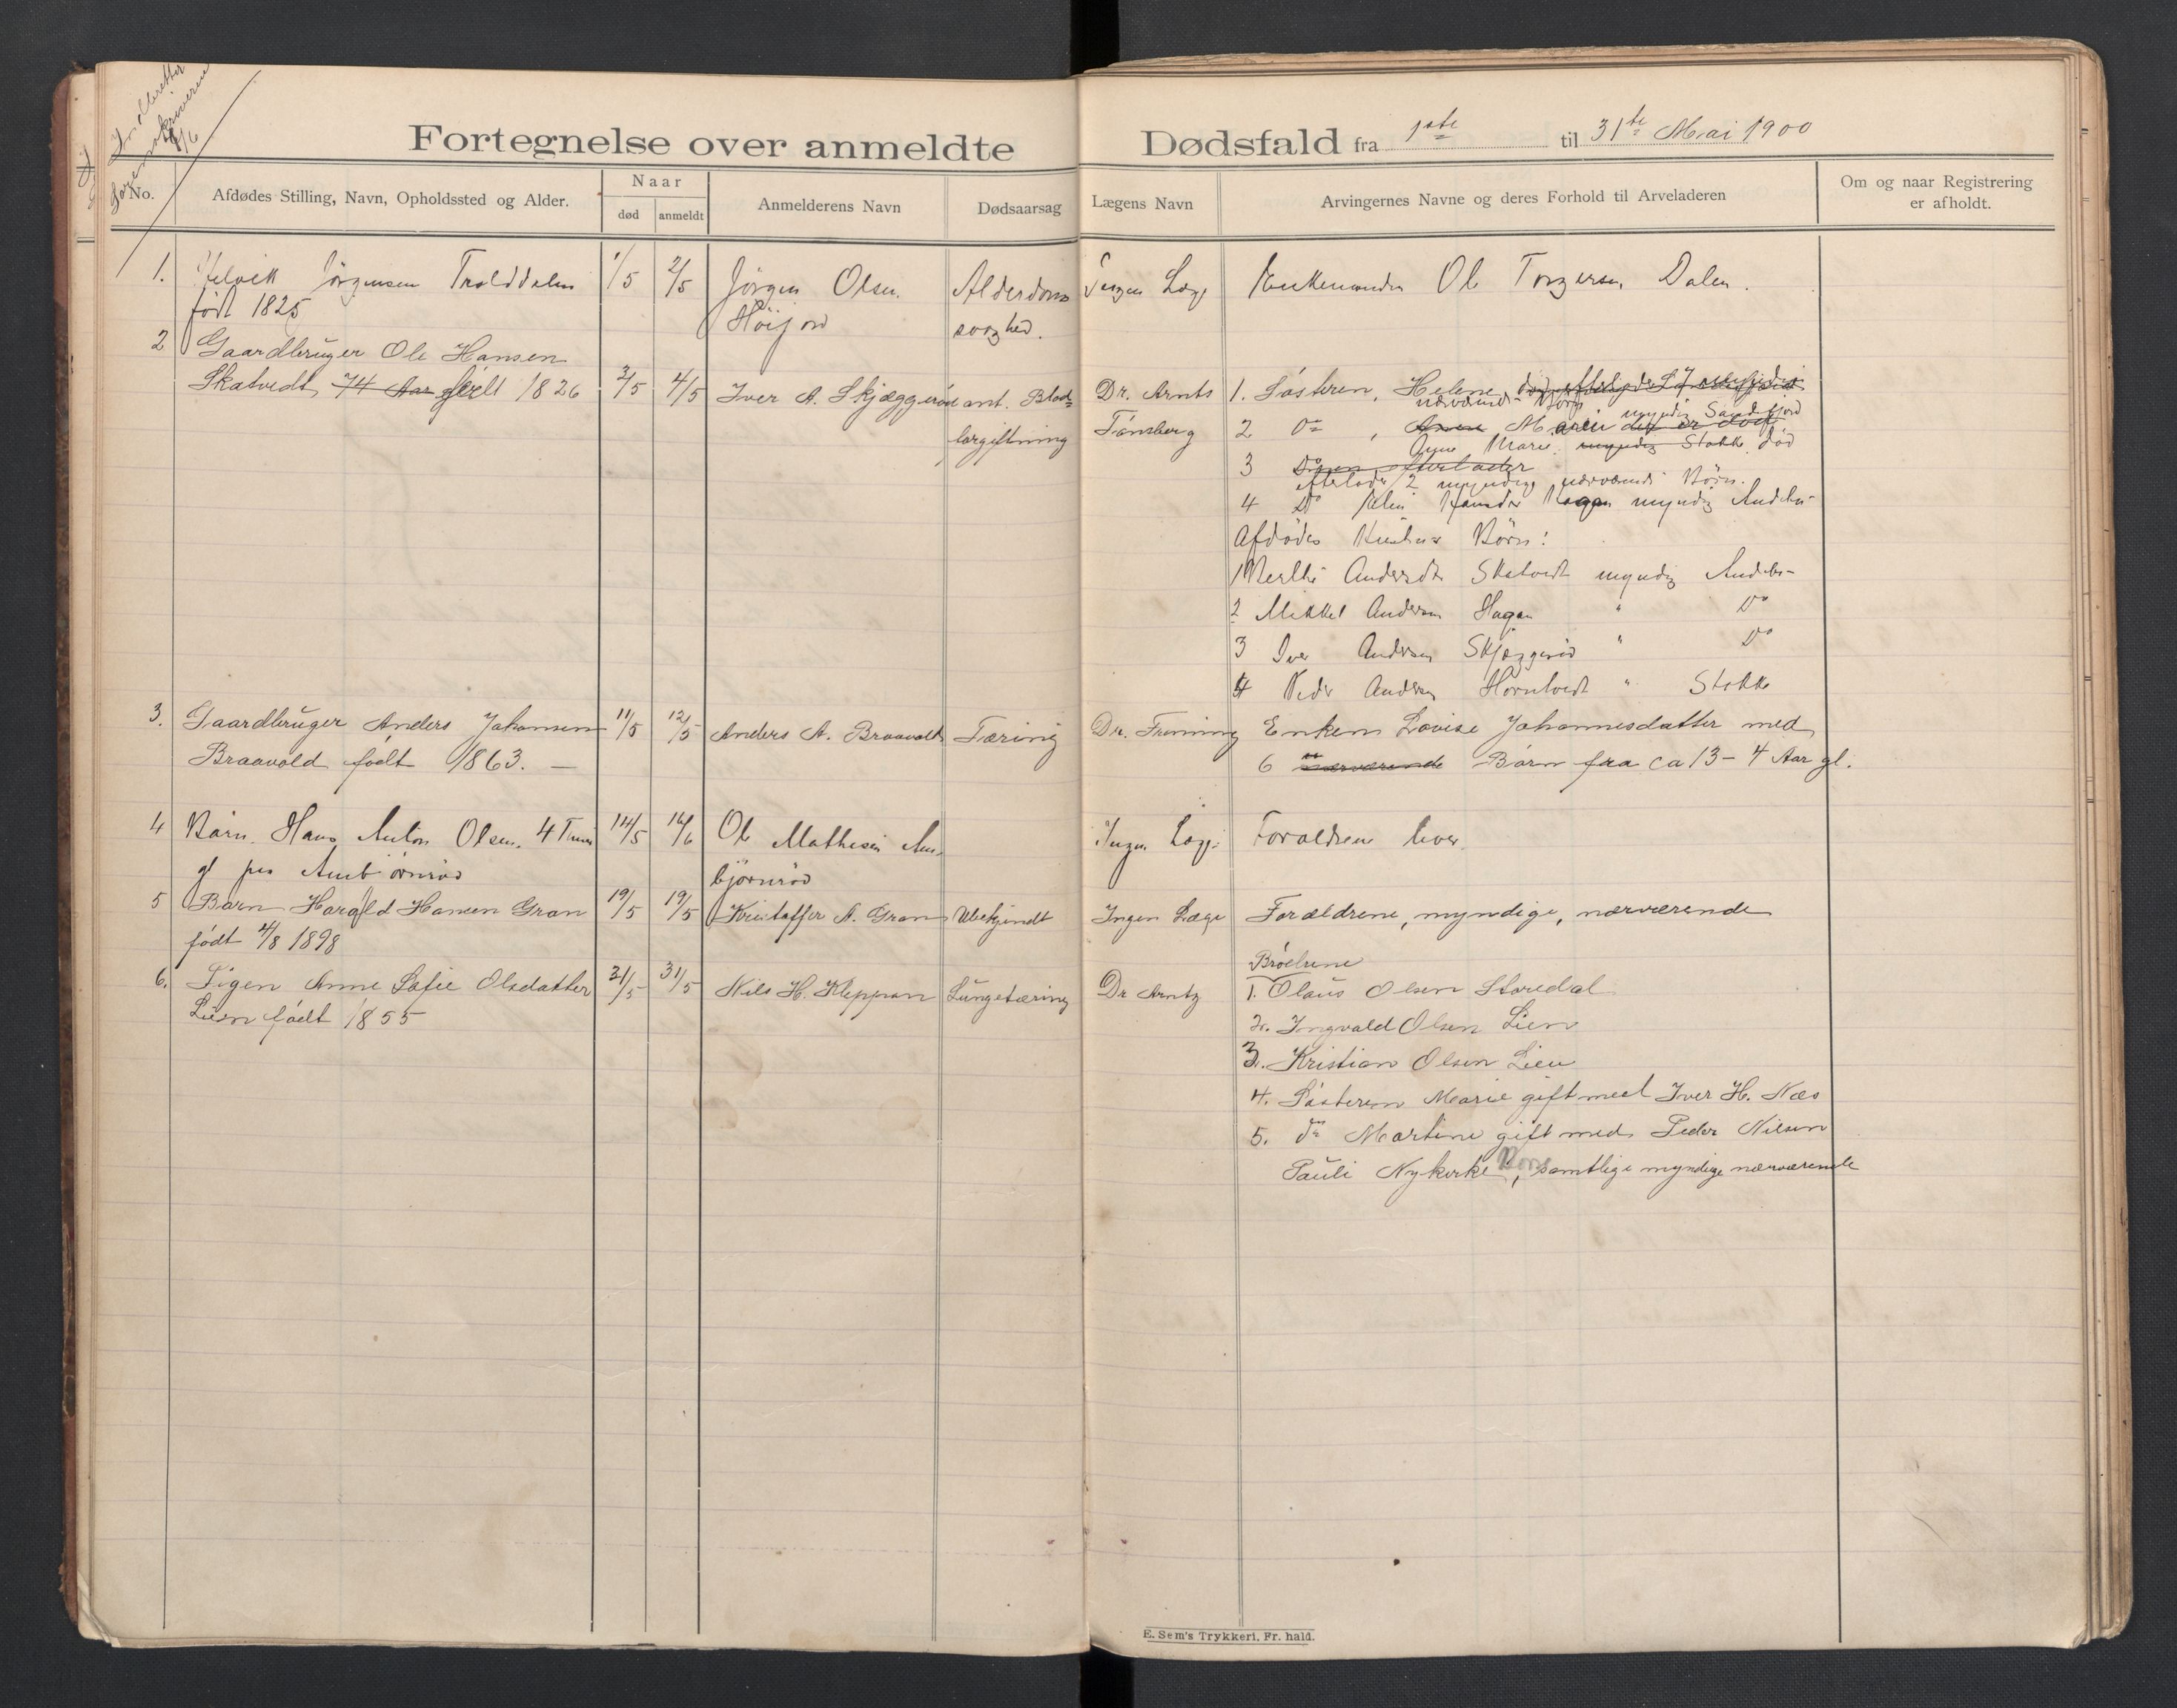 Indberettet
Sorenskriveren
4/6
Fortegnelse over anmeldte Dødsfald fra 1ste til 31te Mai 1900
No.
Afdødes Stilling, Navn, Opholdssted og Alder.
Naar
død
anmeldt
Anmelderens Navn
Dødsaarsag
Lægens Navn
Arvingernes Navne og deres Forhold til Arveladeren
Om og naar Registrering
er afholdt.
1. Jörgensen Trolddalen 1/5 2/5 Jörgen Olsen Alderdoms Ingen Læge Enkemanden Ole Torgersen Dalen.
født 1825 Höijord svaghed.
2 Gaardbruger Ole Hansen
Skatvedt 74 Aar gl født 1826 3/5 4/5 Iver A. Skjæggerød ant. Blod= Dr. Arnts 1. Søsteren, Helene
nærværende Børn
forgiftning Tønsberg 2 Do , Anne Maren myndig Sandefjord
Anne Marie myndig Stokke død
3 Do efterlader
Efterlader 2 myndige nærværende Børn.
4 Do Hansdr Hagen myndig Andebu
Afdødes Hustrus Börn:
1 Berthe Andersdtr Skatvedt myndig Andebu
2 Mikkel Andersen Hagen " Do
3 Iver Andersen Skjæggerød " Do
4 Peder Andersen Hörntvedt " Stokke
3. Gaardbruger Anders Johansen 11/5 12/5 Anders A. Braavold Tæring Dr. Frenning Enken Lovise Johannesdatter med
Braavold født 1863. — 6 nærværende Børn fra ca 13 - 4 Aar gl.
4 Barn Hans Anton Olsen 4 Timer 14/5 16/6 Ole Mathisen Am- Ingen Læge Forældrene lever.
gl paa Ambjörnröd björnröd
5 Barn Harald Hansen Gran 19/5 19/5 Kristoffer A. Gran Ubekjendt Ingen Læge Forældrene, myndige, nærværende
født 4/8 1898
Brødrene
6. Pigen Anne Sofie Olsdatter 31/5 31/5 Nils H. Kleppan Lungetæring Dr Arntz 1. Olaus Olsen Storedal
Lien født 1855
2. Ingvald Olsen Lien
3. Kristian Olsen Lien
4. Søsteren Marie gift med Iver H. Næs
5. do Martine gift med Peder Nilsen
Pauli Nykirke Borre, samtlige myndige nærværende
E. Sem's Trykkeri, Fr. hald.